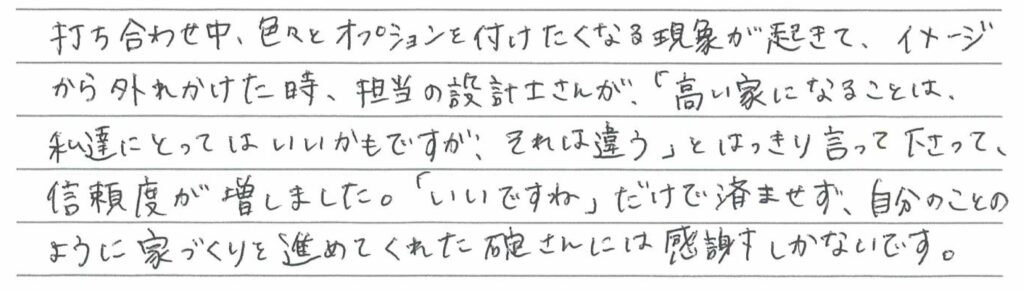 打ち合わせ中、色々とオプションを付けたくなる現象が起きて、イメージ
から外れかけた時、担当の設計士さんが、「高い家になることは、
私達にとってはいいかもですが、それは違う」とはっきり言って下さって、
信頼度が増しました。「いいですね」だけで済ませず、自分のことの
ように家づくりを進めてくれた碇さんには感謝しかないです。